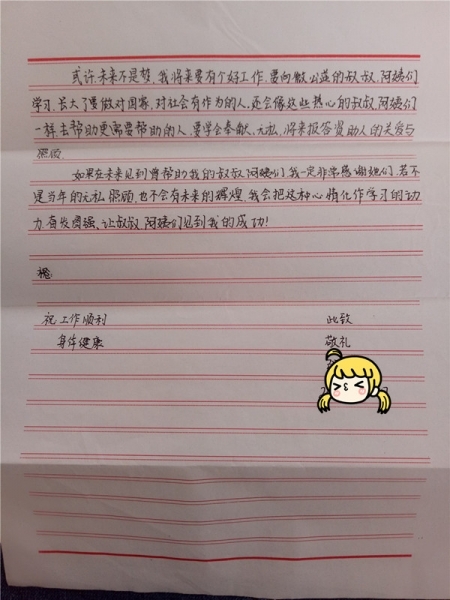 或许，未来不是梦，我将来要有个好工作，要向做公益的叔叔、阿姨们
学习，长大了要做对国家，对社会有作为的人，还会像这些热心的叔叔、阿姨们
一样去帮助更需要帮助的人，要学会奉献、无私，将来报答资助人的关爱与
照顾。
如果在未来见到曾帮助我的叔叔、阿姨们，我一定非常感谢她们，若不
是当年的无私照顾，也不会有未来的辉煌，我会把这种心情化作学习的动
力，奋发图强、让叔叔、阿姨们见到我的成功！
祝：
祝工作顺利 此致
身体健康 敬礼